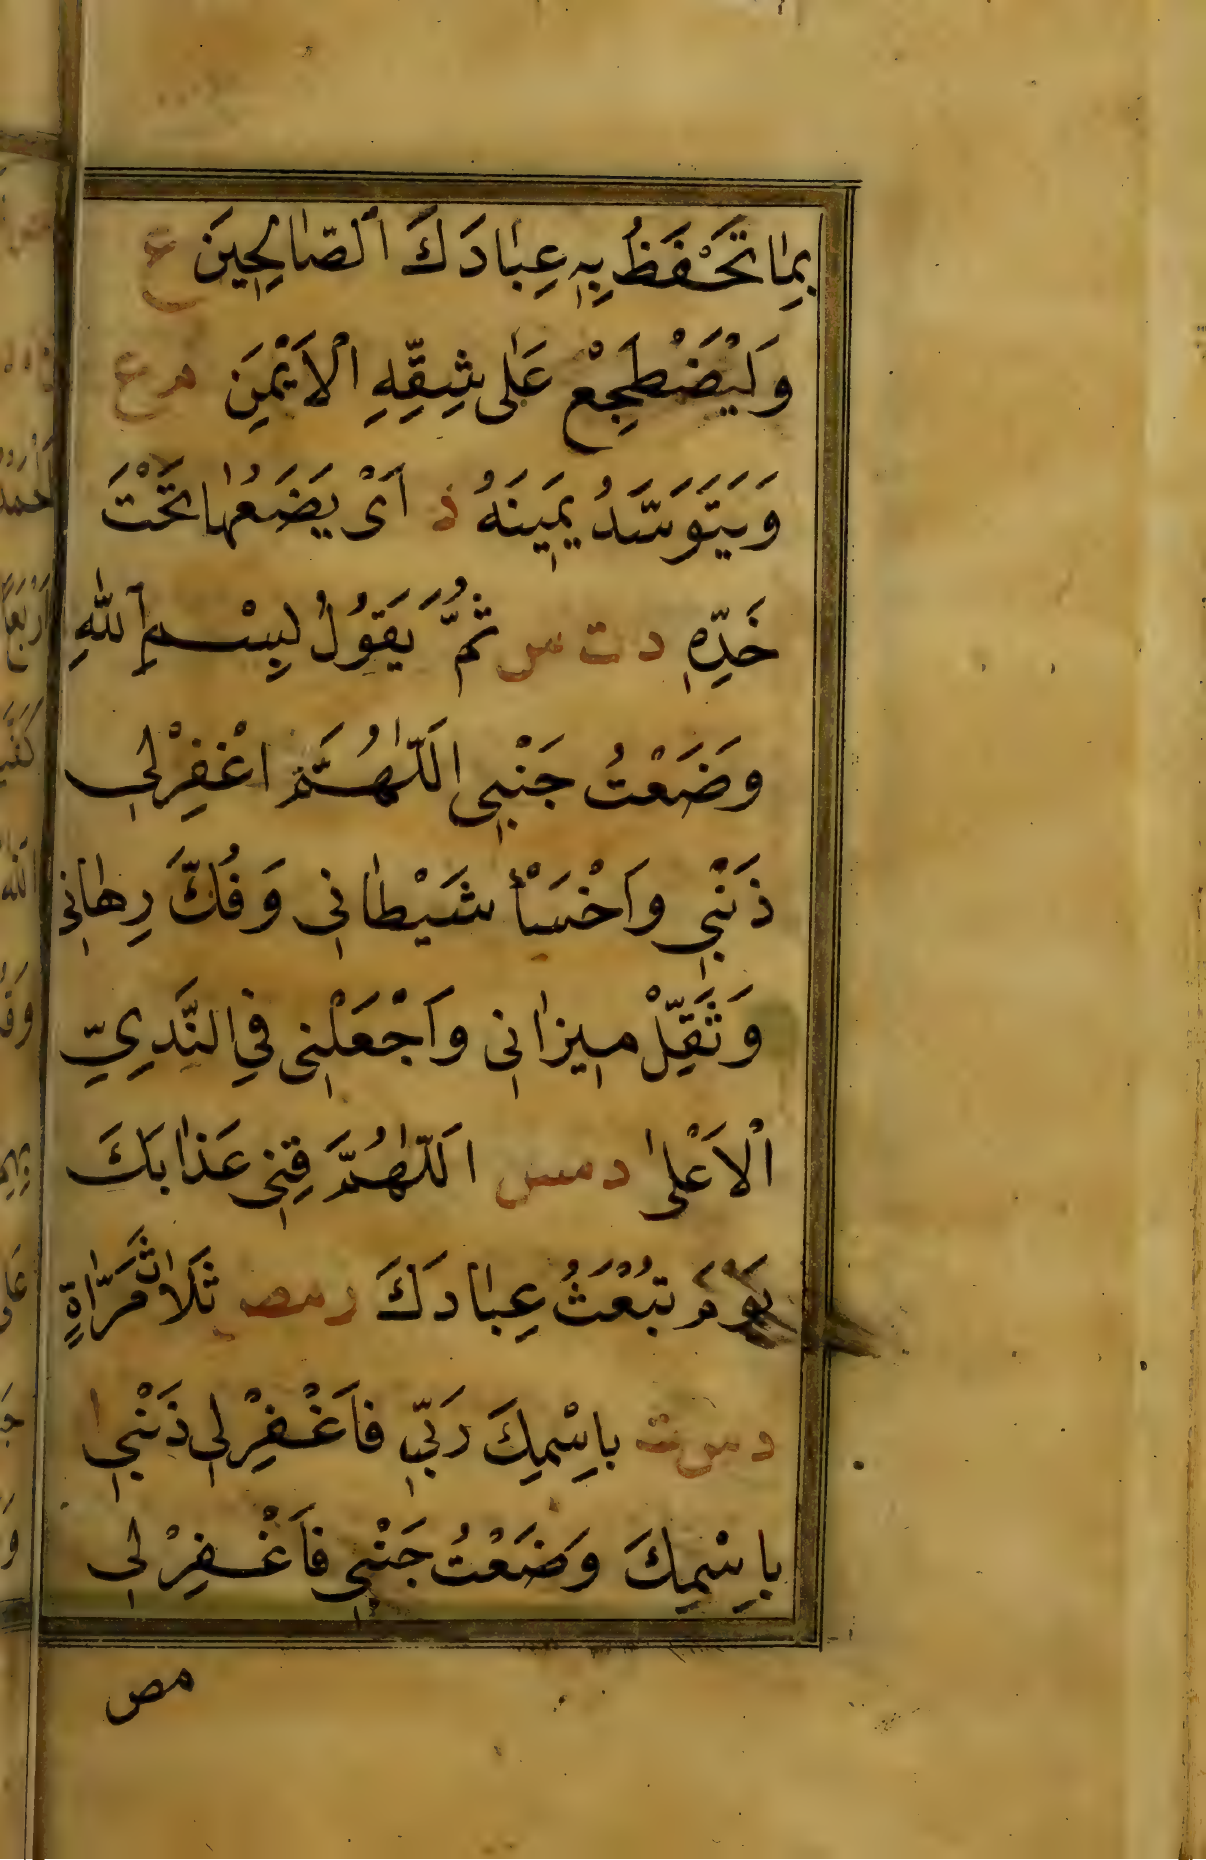 بِمَا تَحْفَظُ بِهِ عِبَادَكَ الصَّالِحِينَ ع
وَلْيَضْطَجِعْ عَلَى شِقِّهِ الْاَيْمَنِ م ع
وَيَتَوَسَّدُ يَمِينَهُ د اَىْ يَضَعُهَا تَحْتَ
خَدِّهِ د ت س ثُمَّ يَقُولُ بِسْمِ اللّٰهِ
وَضَعْتُ جَنْبِى اَللّٰهُمَّ اغْفِرْلِى
ذَنْبِى وَاَخْسَأْ شَيْطَانِى وَفُكَّ رِهَانِى
وَثَقِّلْ مِيزَانِى وَاَجْعَلْنِى فِي النَّدِيِّ
الْاَعْلٰى د مس اَللّٰهُمَّ قِنِى عَذَابَكَ
يَوْمَ تَبْعَثُ عِبَادَكَ ر مص ثَلَاثَ مَرَّاةٍ
د س ت بِاسْمِكَ رَبِّى فَاَغْفِرْلِى ذَنْبِى ا
بِاسْمِكَ وَضَعْتُ جَنْبِى فَاَغْفِرْ لِى
مص